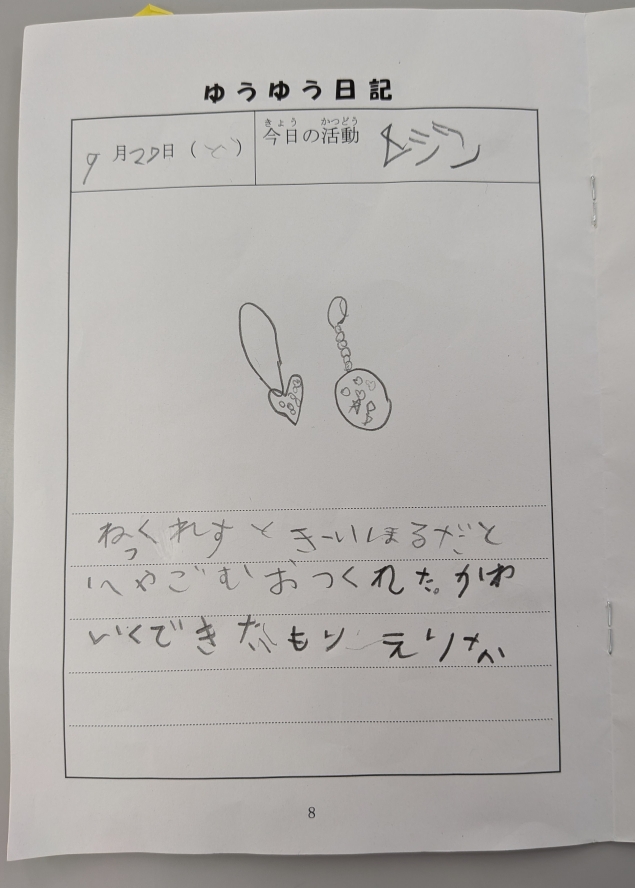 ゆうゆう日記
9月27日（ど） 今日の活動 レジン
ねっくれすと きーいほるだと
へやごむおつくれた。かわ
いくできた もり えりか
8